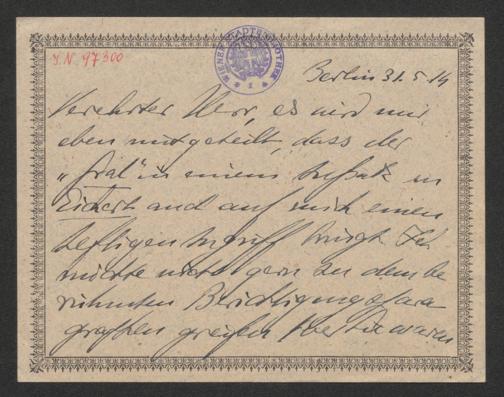 J.N. 97300
WIENER STADTBIBLIOTHEK
Berlin 31.5.14
Verehrter Herr, es wird mir
eben mitgeteilt, dass der
„Gral" in einem Aufsatz in
Eichert auch auf mich einen
heftigen Angriff bringt. Ich
möchte nicht gern zu dem be
rühmten Berichtigungspara
graphen greifen